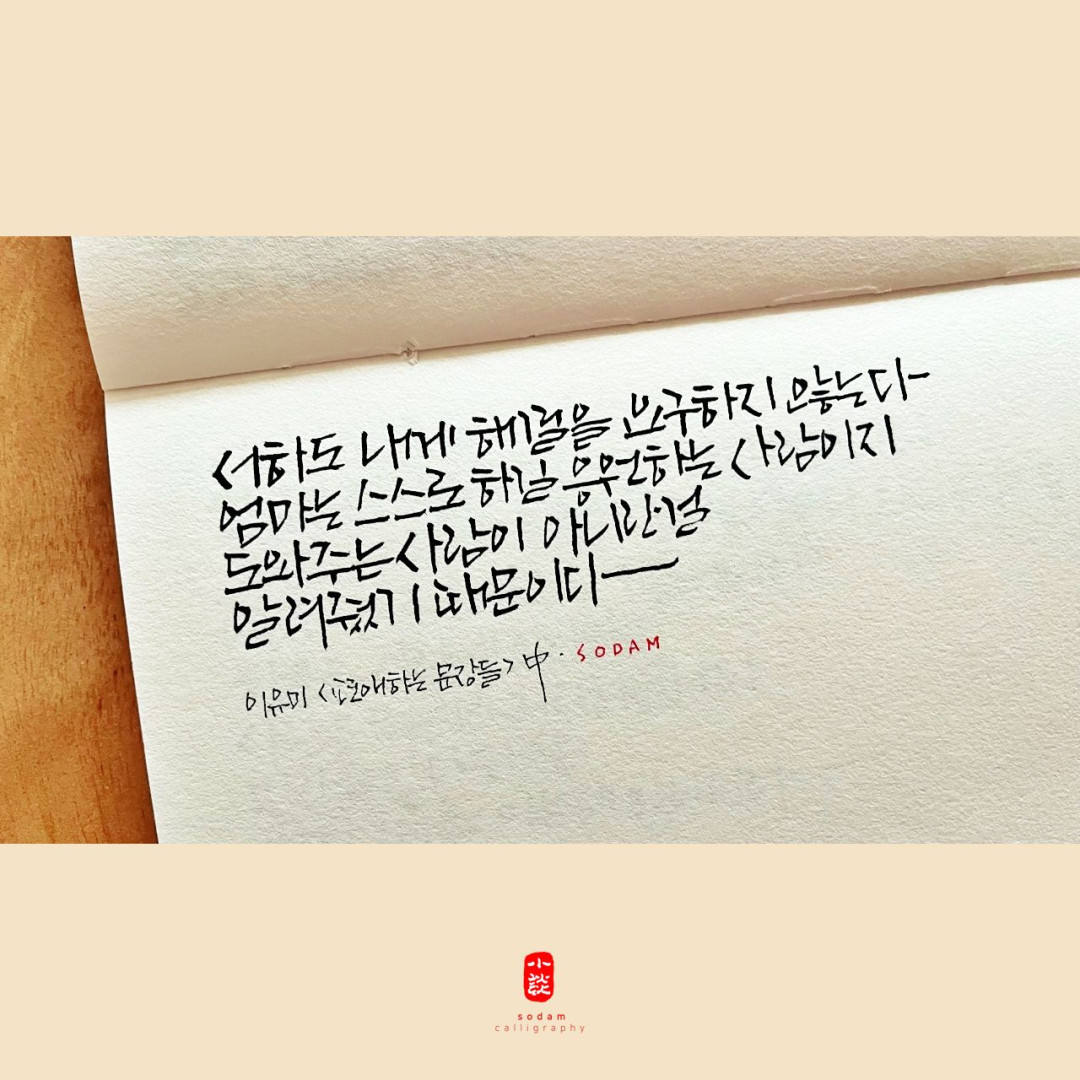 서하도 내게 해결을 요구하지 않는다
엄마는 스스로 하길 응원하는 사람이지
도와주는 사람이 아니란 걸
알려줬기 때문이다
이유미 <편애하는 문장들> 中. SODAM
小談
sodam
calligraphy